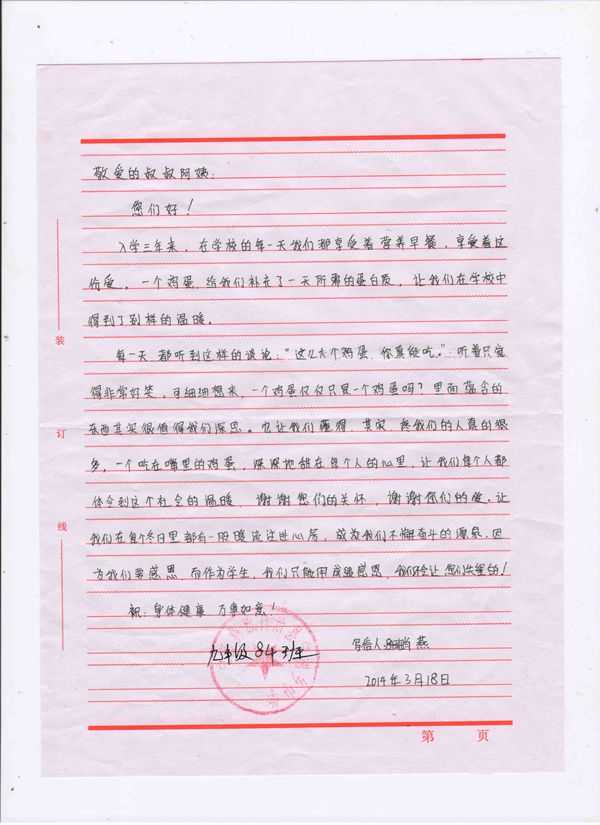 敬爱的叔叔阿姨:
您们好!
入学三年来,在学校的每一天我们都享受着营养早餐,享受着这
份爱,一个鸡蛋,给我们补充了一天所需的蛋白质,让我们在学校中
得到了别样的温暖。
每一天都听到这样的谈论:"这么大个鸡蛋,你真能吃。"听着只觉
得非常好笑,可细细想来,一个鸡蛋仅仅只是一个鸡蛋吗?里面蕴含的
东西其实很值得我们深思。也让我们懂得,其实,疼我们的人真的很
多,一个吃在嘴里的鸡蛋,深深地甜在每个人的心里,让我们每个人都
体会到这个社会的温暖,谢谢您们的关怀,谢谢您们的爱。让
我们在每个冬日里都有一股暖流注进心房,成为我们不懈奋斗的源泉,因
为我们要感恩,而作为学生,我们只能用成绩感恩,我们不会让您们失望的!
祝:身体健康 万事如意!
九年级84班
写信人: 燕
2014年3月18日
装
订
线
第 页